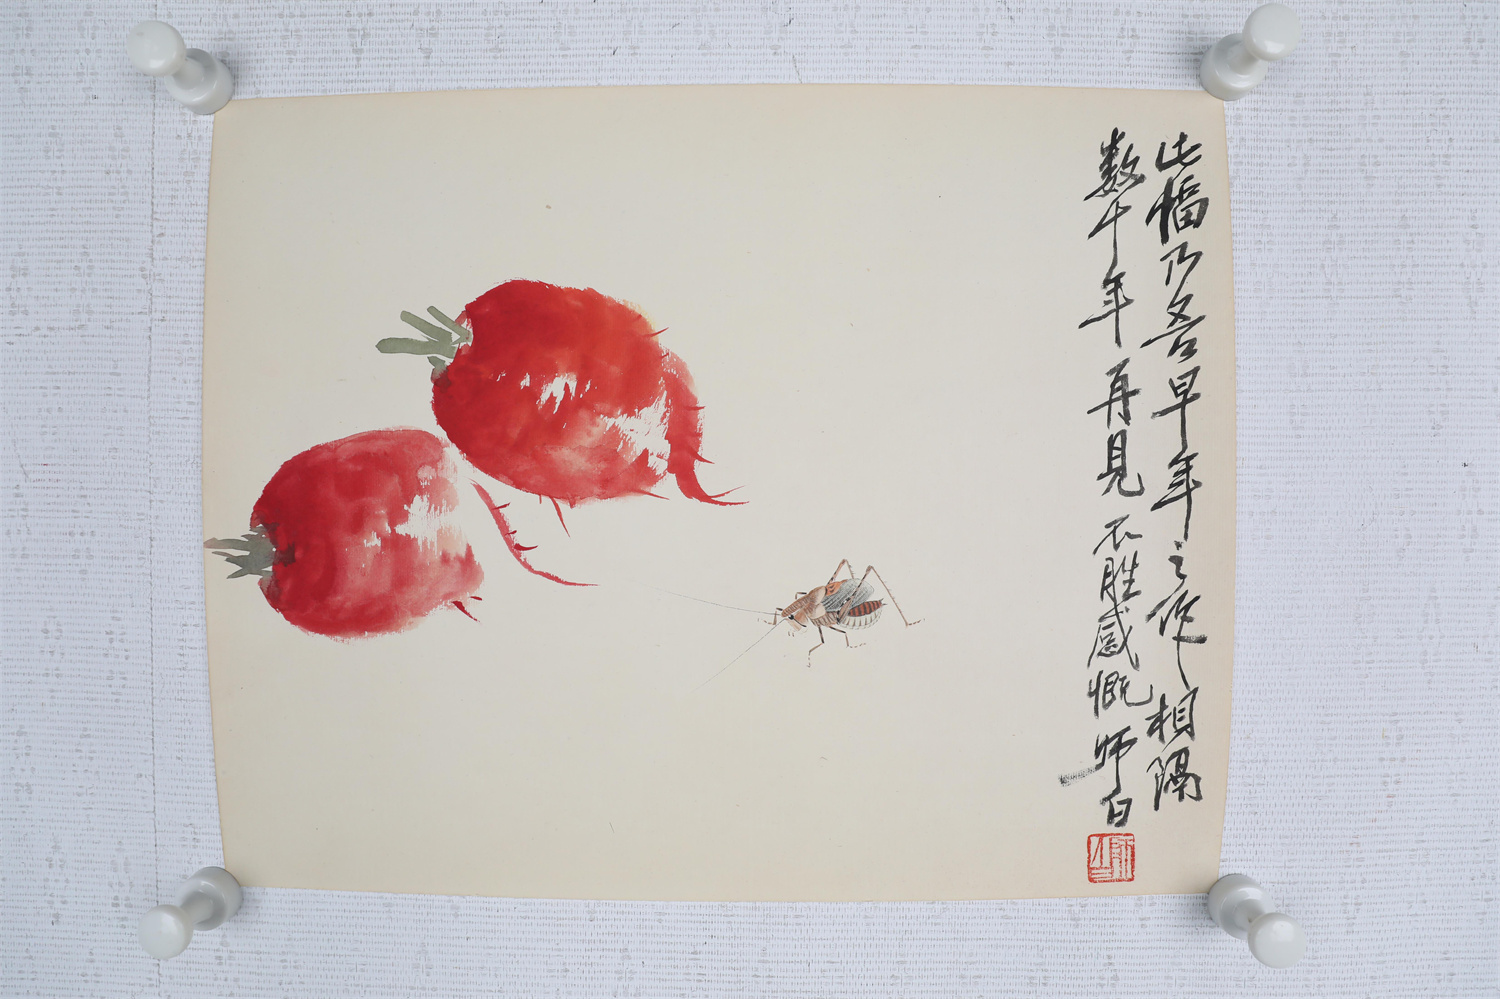 此幅乃吾早年之作相隔
数十年再见不胜感慨师白